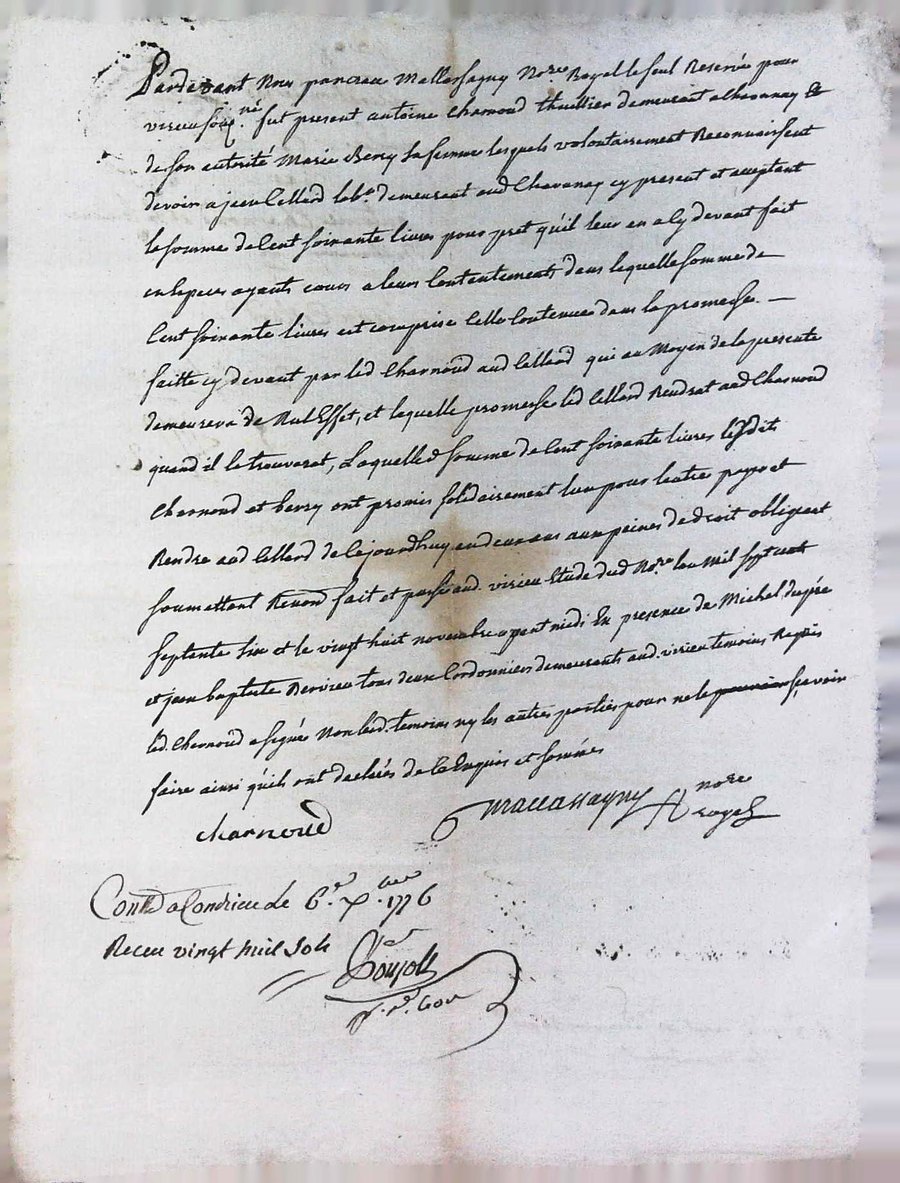 Pardevant Nous pancrace Mallassagny No.re Royal le seul Reservé pour
virieu souz.né fut present antoine Charnoud thuillier demeurant a chavanay &
de son autorité Marie Berry sa femme lesquels volontairement Reconnoissent
devoir a jean Cellard lab.r demeurant aud Chavanay cy present et acceptant
la somme de Cent soixante livres pour pret qu'il leur en a Cy devant fait
en especes ayants cours a leurs Contentements dans laquelle somme de
Cent soixante livres est comprise Celle Contenue dans la promesse
faitte cy devant par led Charnoud aud Cellard qui au Moyen de la presente
demeurera de Nul Effet, et laquelle promesse led Cellard Rendrat aud Charnoud
quand il la trouverat, Laquelle somme de Cent soixante livres lesdits
Charnoud et berry ont promis solidairement l'un pour l'autre payer et
Rendre aud Cellard de Cejourdhuy en deux ans aux peines de droit obligeant
soumettant Renonc fait et passé aud. virieu Etude dud No.re lan Mil sept cent
septante six et le vingt huit novembre avant midi En presence de Michel dupré
et jean baptiste Dervieu tous deux Cordonniers demeurants aud. virieu temoins Requis
led. Charnoud a signé Non lesd. temoins ny les autres parties pour ne le sçavoir
faire ainsi qu'ils ont declarés de Ce Enquis et sommés
charnoud
Mallassagny no.re
royal
Contlé a Condrieu le 6.e x.bre 1776
Receu vingt huit sols